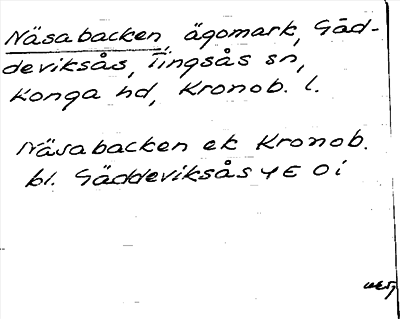 Näsabacken, ägomark, Gäd-
deviksås, Tingsås sn,
Konga hd, Kronob. l.
Näsabacken ek Kronob.
bl. Gäddeviksås 4 E 0 i